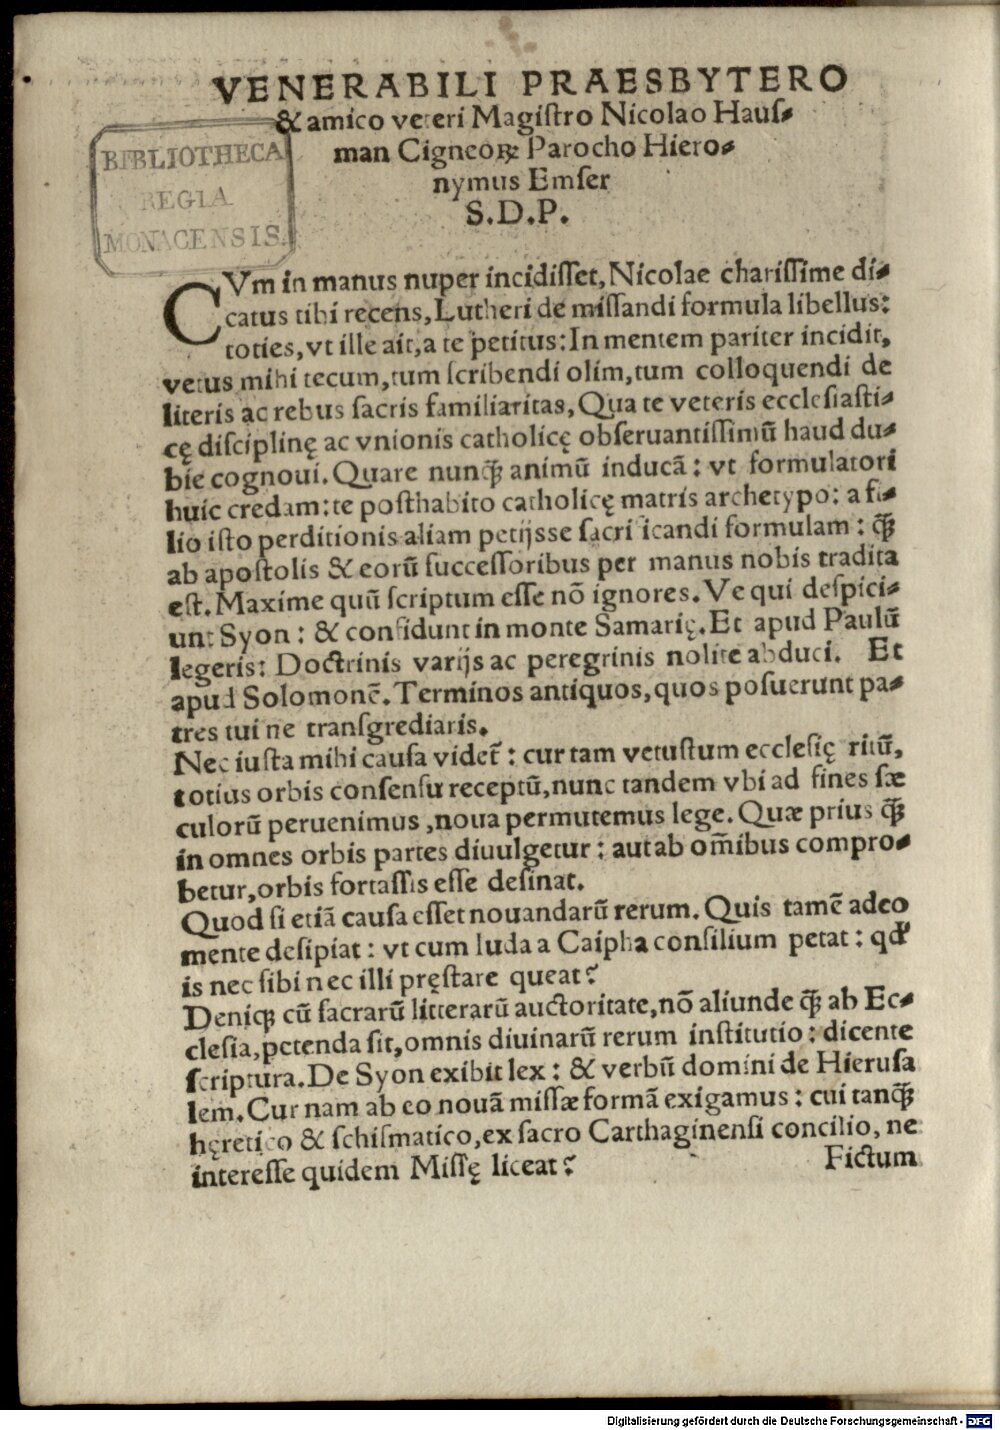 VENERABILI PRAESBYTERO
& amico veteri Magiſtro Nicolao Hauſ⸗
man Cigneoꝝ Parocho Hiero⸗
nymus Emſer
S.D.P.
BIBLIOTHECA
REGIA
MONACENSIS.
CVm in manus nuper incidiſſet, Nicolae chariſſime di⸗
catus tibi recens, Lutheri de miſſandi formula libellus:
toties, vt ille ait, a te petitus: In mentem pariter incidit,
vetus mihi tecum, tum ſcribendi olim, tum colloquendi de
literis ac rebus ſacris familiaritas, Qua te veteris eccleſiaſti⸗
cę diſciplinę ac vnionis catholicę obſeruantiſſimū haud du⸗
bie cognoui. Quare nunꝙ̄ animū inducā: vt formulatori
huic credam: te poſthabito catholicę matris archetypo: a fi⸗
lio iſto perditionis aliam petijsse ſacrificandi formulam: ꝙ̄
ab apoſtolis & eorū ſucceſſoribus per manus nobis tradita
eſt. Maxime quū ſcriptum eſſe nō ignores. Ve qui deſpici⸗
unt Syon: & confidunt in monte Samarię. Et apud Paulū
legeris: Doctrinis varijs ac peregrinis nolite abduci. Et
apud Solomonē. Terminos antiquos, quos poſuerunt pa⸗
tres tui ne tranſgrediaris.
Nec iuſta mihi cauſa videt᷑: cur tam vetuſtum eccleſię ritū,
totius orbis conſenſu receptū, nunc tandem vbi ad fines ſæ
culorū peruenimus, noua permutemus lege. Quæ prius ꝙ̄
in omnes orbis partes diuulgetur: aut ab om̄ibus compro⸗
betur, orbis fortaſſis eſſe deſinat.
Quod ſi etiā cauſa eſſet nouandarū rerum. Quis tamē adeo
mente deſipiat: vt cum Iuda a Caipha conſilium petat: qd'
is nec ſibi nec illi pręſtare queat?
Deniqꝫ cū ſacrarū litterarū auctoritate, nō aliunde ꝙ̄ ab Ec⸗
cleſia, petenda ſit, omnis diuinarū rerum inſtitutio: dicente
ſcriptura. De Syon exibit lex: & verbū domini de Hieruſa
lem. Cur nam ab eo nouā miſſæ formā exigamus: cui tanꝙ̄
hęretico & ſchiſmatico, ex ſacro Carthaginenſi concilio, ne
intereſſe quidem Miſſę liceat?
Fictum
Digitalisierung gefördert durch die Deutsche Forschungsgemeinschaft - DFG